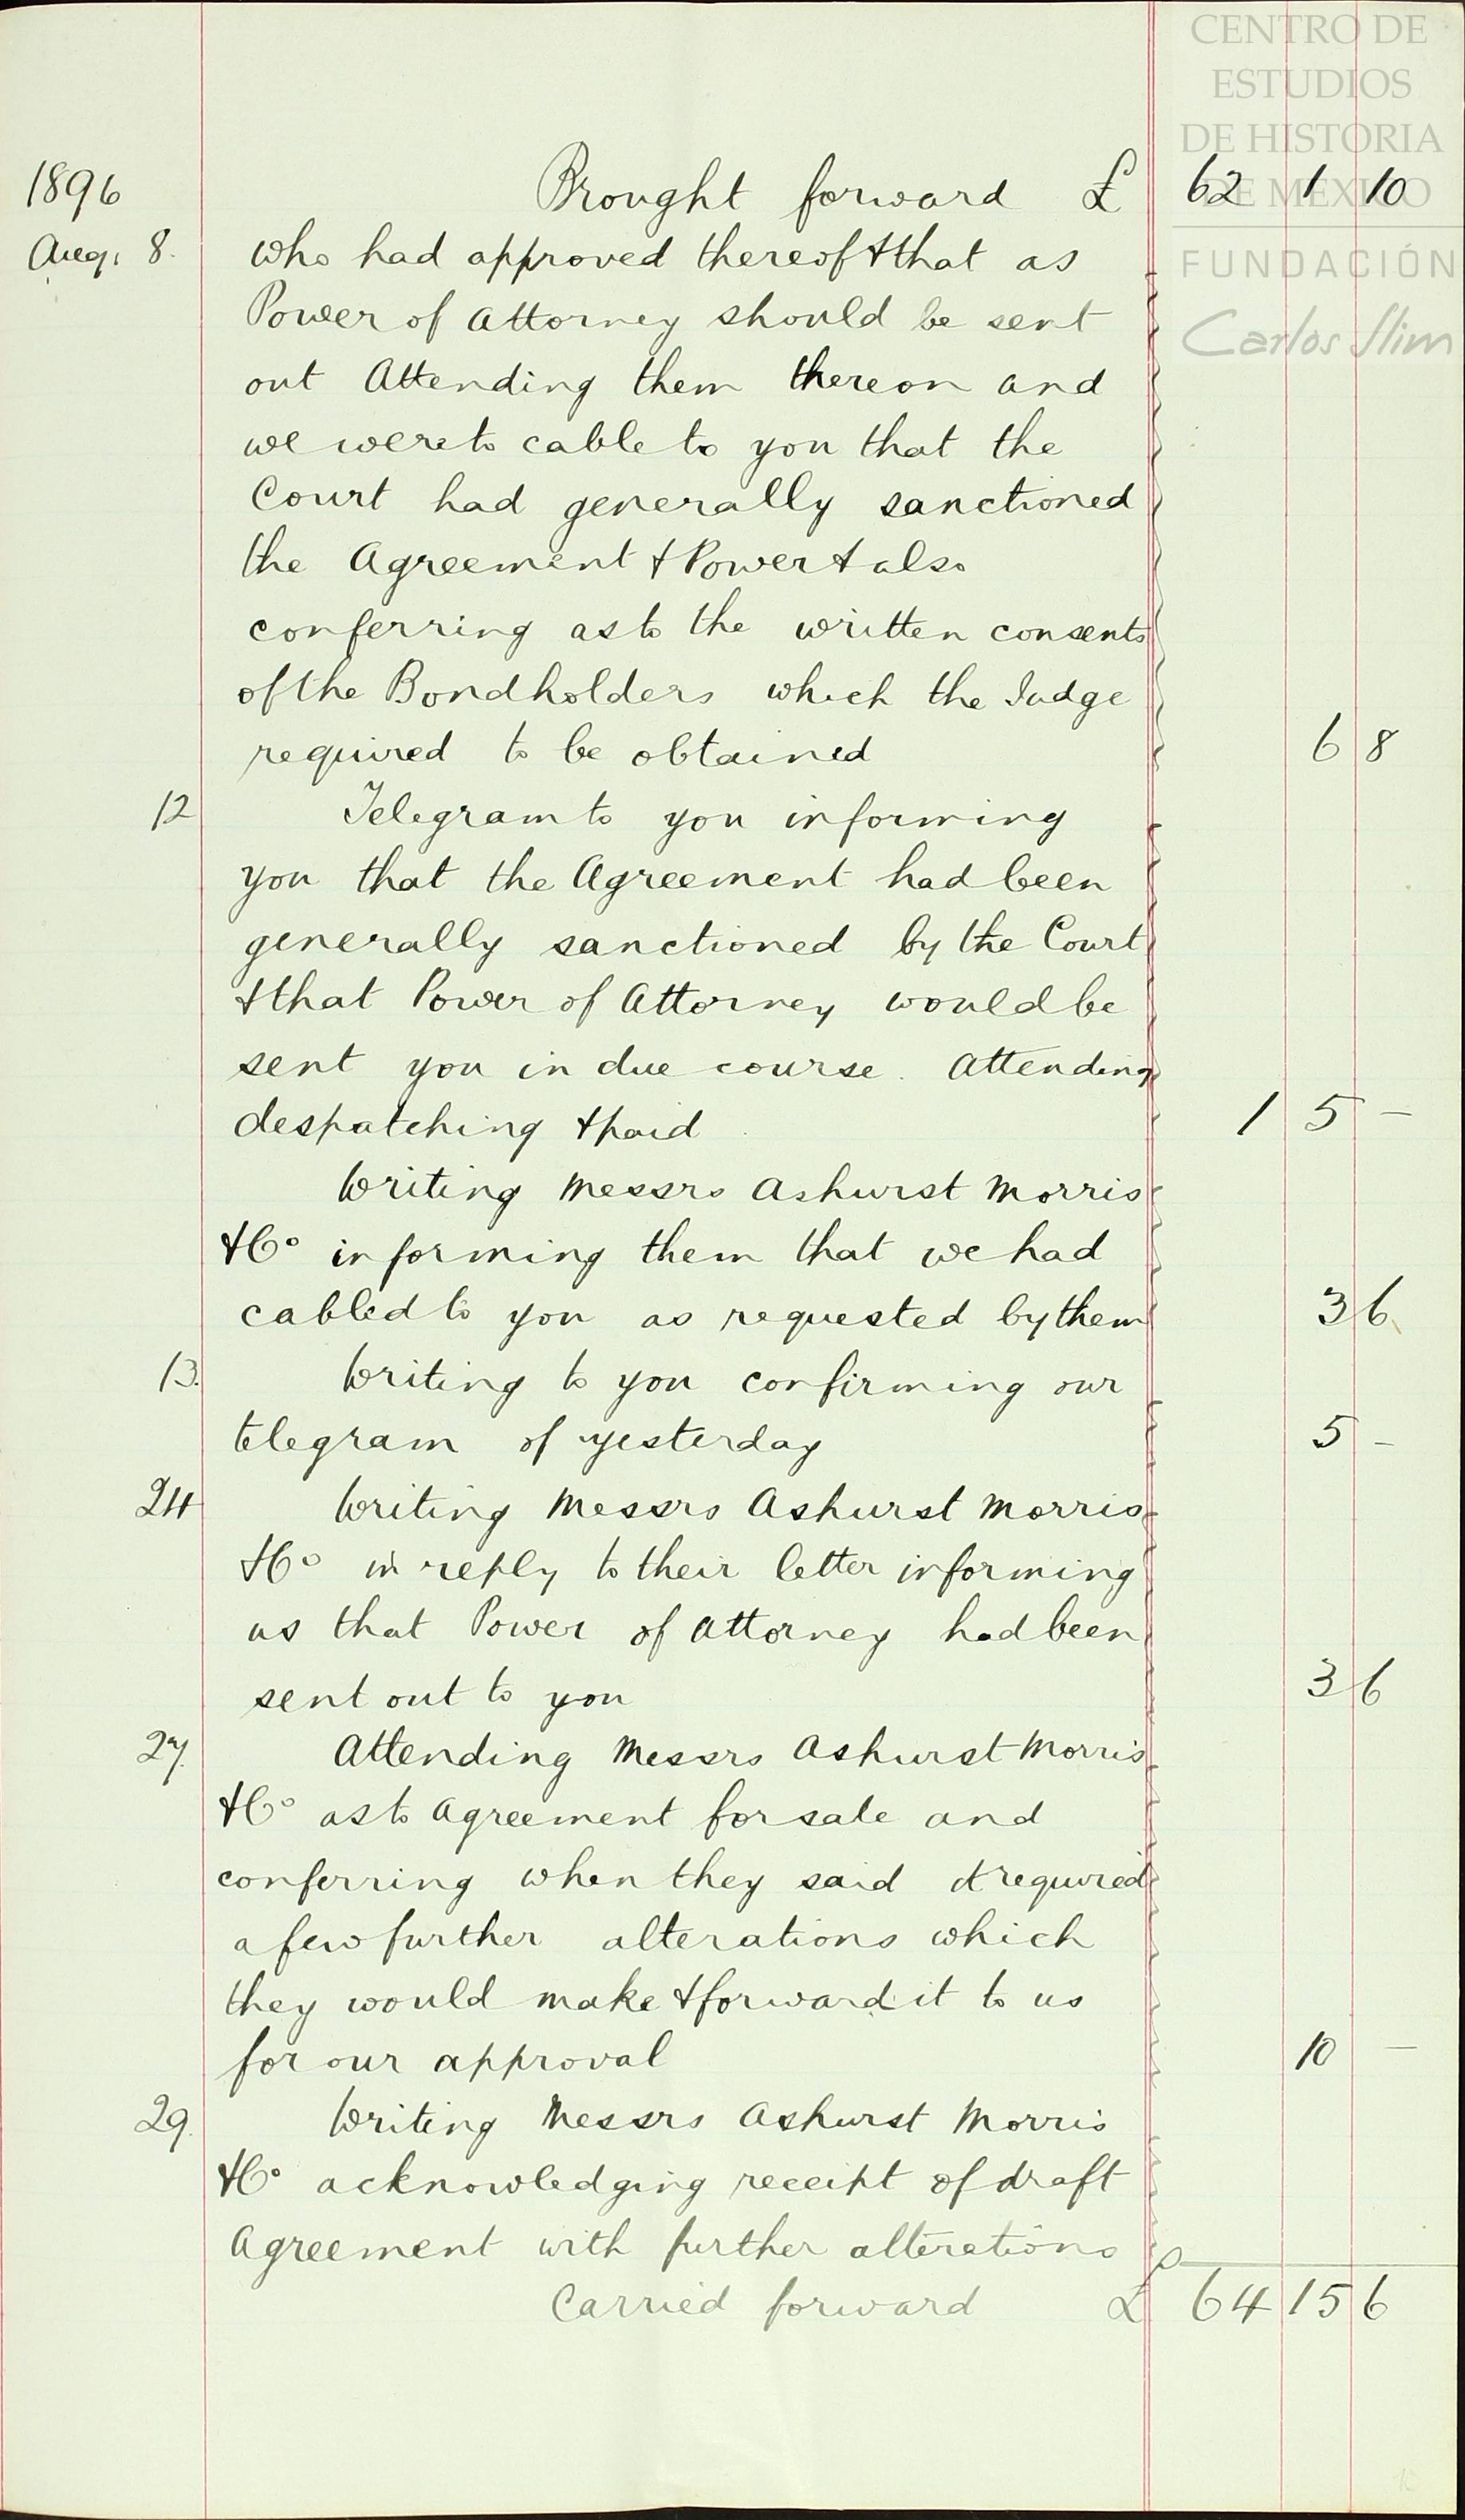 CENTRO DE
ESTUDIOS
DE HISTORIA
DE MÉXICO
FUNDACIÓN
Carlos Slim
1896 Brought forward £ 62 1 10
Aug. 8. who had approved thereof & that as
Power of Attorney should be sent
out Attending them thereon and
we were to cable to you that the
Court had generally sanctioned
the Agreement & Power & also
conferring as to the written consents
of the Bondholders which the Judge
required to be obtained 6 8
12 Telegram to you informing
you that the Agreement had been
generally sanctioned by the Court
& that Power of Attorney would be
sent you in due course. Attending
despatching & paid 1 5 –
Writing Messrs Ashurst Morris
& Co informing them that we had
cabled to you as requested by them 3 6
13. Writing to you confirming our
telegram of yesterday 5 –
24 Writing Messrs Ashurst Morris
& Co in reply to their letter informing
us that Power of Attorney had been
sent out to you 3 6
27. Attending Messrs Ashurst Morris
& Co as to Agreement for sale and
conferring when they said it required
a few further alterations which
they would make & forward it to us
for our approval 10 –
29. Writing Messrs Ashurst Morris
& Co acknowledging receipt of draft
Agreement with further alterations
Carried forward £ 64 15 6